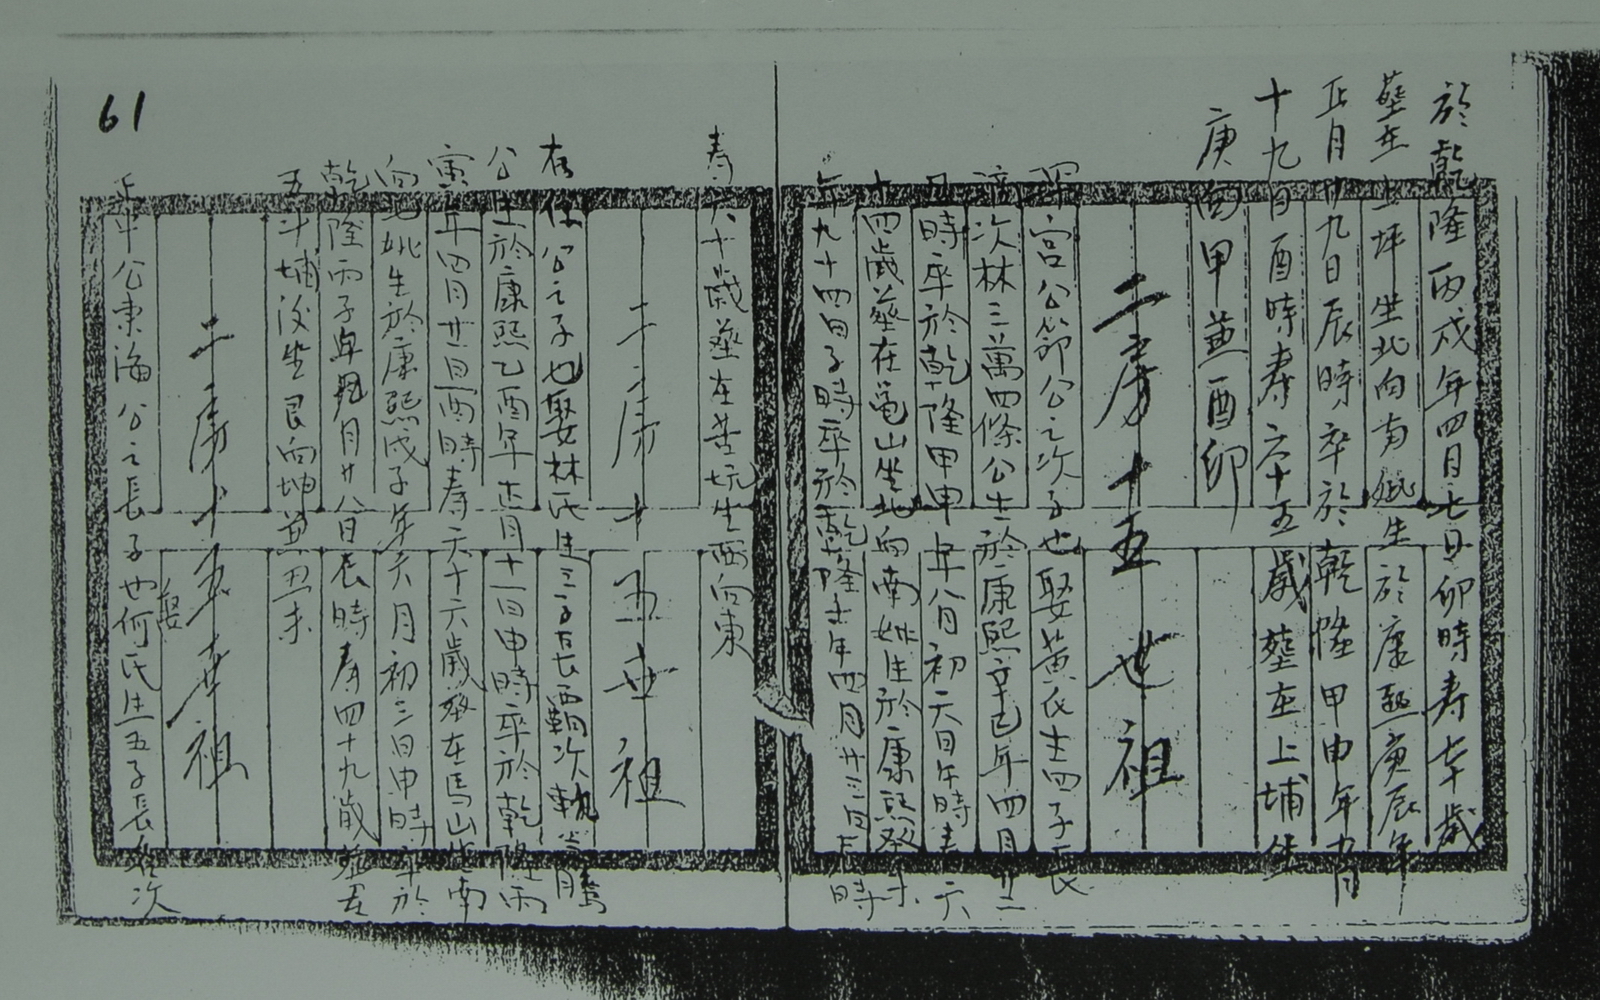 於乾隆丙戌年四月七日卯時寿七十歲
塟在上坪坐北向南妣生於康熙庚辰年
正月廿九日辰時卒於乾隆甲申年九月
十九日酉時寿六十五歲塟在上埔坐
庚向甲兼酉卯
二房十五世祖
宫公節公之次子也娶黄氏生四子長
次林三萬四條公生於康熙辛巳年四月廿二
時卒於乾隆甲申年八月初六日午時寿六
十四歲塟在亀山坐北向南妣生於康熙癸未
年九十四日子時卒於乾隆 年四月廿三日 時
寿六十歲塟在苦坑坐西向東
二房十五世祖
公之子也娶林氏生三子長 次 三
公生於康熙乙酉年正月十一日申時卒於乾隆丙
寅年四月廿 日酉時寿六十六歲塟在馬山坐南
向北妣生於康熙戊子年六月初三日申時卒於
乾隆丙子年 月廿八日辰時寿四十九歲塟在
五斗埔後坐艮向坤兼丑未
二房十五世祖
公東海公之長子也娶何氏生五子長 次
61